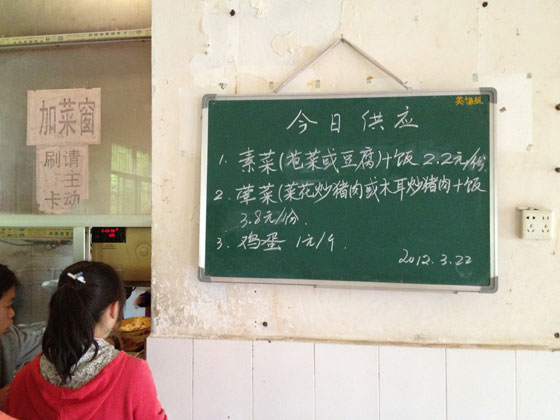 加菜窗
请主动
刷卡
今日供应
1. 素菜(苞菜或豆腐)+饭 2.2元/份
2. 荤菜(菜花炒猪肉或木耳炒猪肉+饭
3.8元/份
3. 鸡蛋 1元/个
2012.3.22